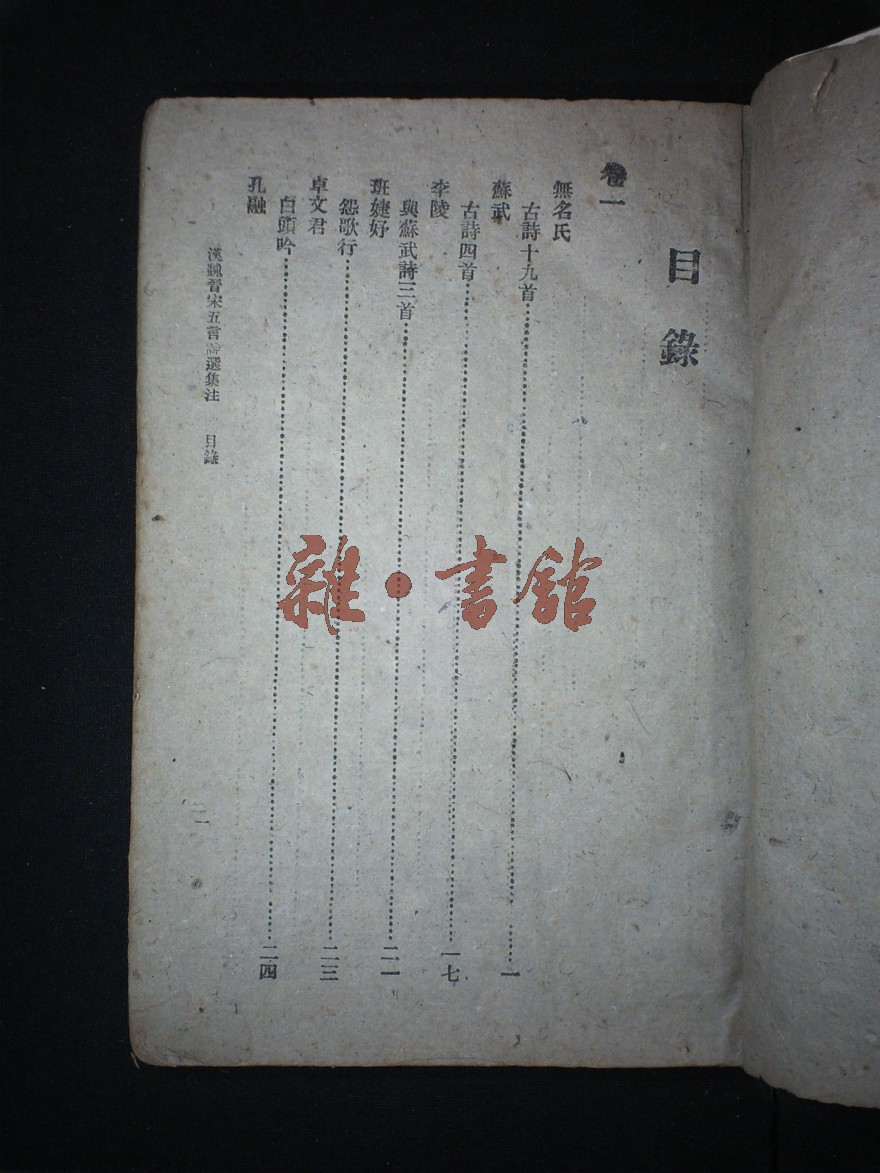 目錄
卷一
無名氏
古詩十九首……一
蘇武
古詩四首……一七
李陵
與蘇武詩三首……二一
班婕妤
怨歌行……二三
卓文君
白頭吟……二四
孔融
漢魏晉宋五言詩選集注 目錄
雜·書館